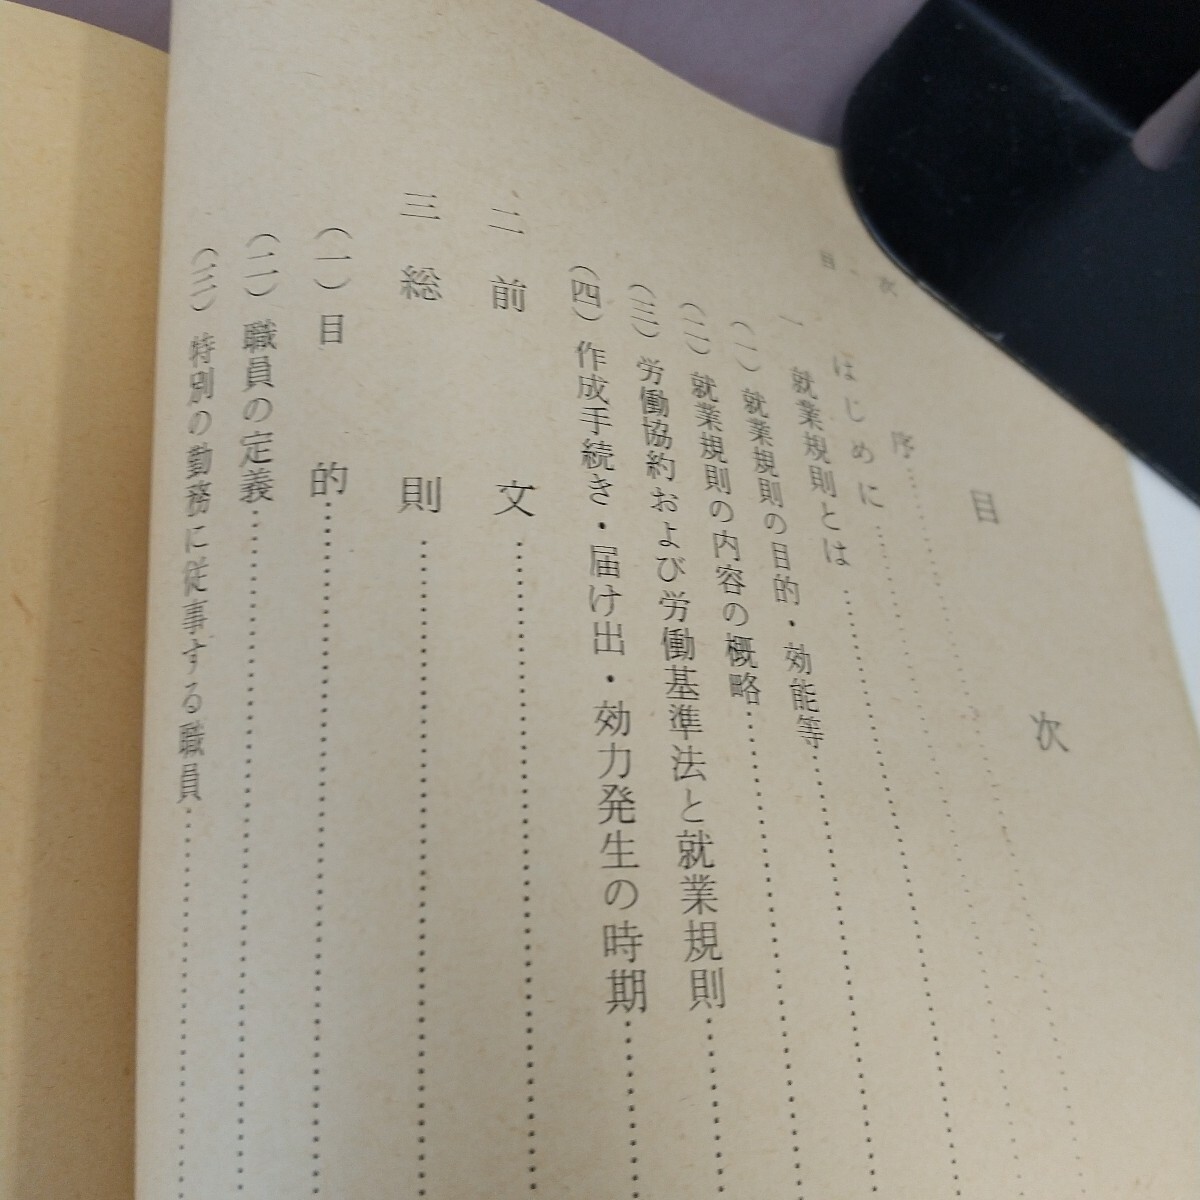 目次
目次
序
はじめに
一 就業規則とは
(一) 就業規則の目的・効能等
(二) 就業規則の内容の概略
(三) 労働協約および労働基準法と就業規則
(四) 作成手続き・届け出・効力発生の時期
二 前文
三 総則
(一) 目的
(二) 職員の定義
(三) 特別の勤務に従事する職員